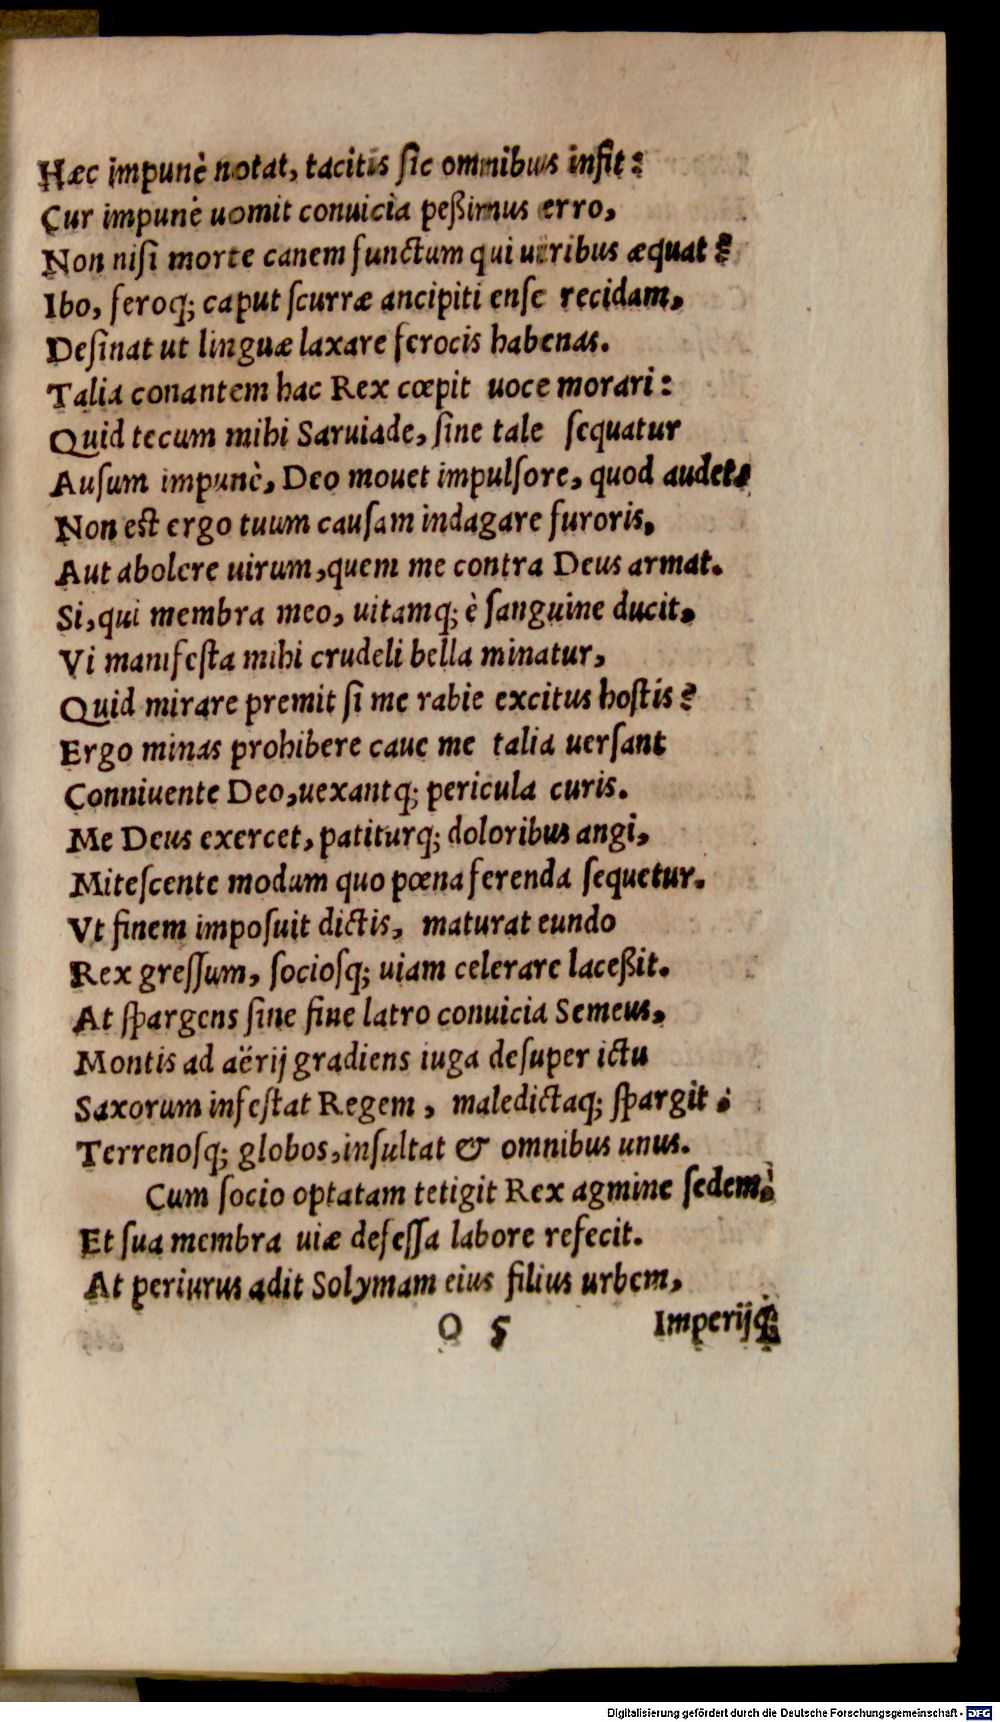 Hæc impunè notat, tacitis ſic omnibus infit:
Cur impunè uomit conuicia peßimus erro,
Non niſi morte canem functum qui uiribus æquat?
Ibo, feroq; caput ſcurræ ancipiti enſe recidam,
Deſinat ut linguæ laxare ferocis habenas.
Talia conantem hac Rex cœpit uoce morari:
Quid tecum mihi Saruiade, ſine tale ſequatur
Auſum impunè, Deo mouet impulſore, quod audet.
Non eſt ergo tuum cauſam indagare furoris,
Aut abolere uirum, quem me contra Deus armat.
Si, qui membra meo, uitamq; è ſanguine ducit,
Vi manifeſta mihi crudeli bella minatur,
Quid mirare premit ſi me rabie excitus hoſtis?
Ergo minas prohibere caue me talia uerſant
Conniuente Deo, uexantq; pericula curis.
Me Deus exercet, patiturq; doloribus angi,
Miteſcente modum quo pœna ferenda ſequetur.
Vt finem impoſuit dictis, maturat eundo
Rex greſſum, ſociosq; uiam celerare laceßit.
At ſpargens ſine fine latro conuicia Semeus,
Montis ad aërij gradiens iuga deſuper ictu
Saxorum infeſtat Regem, maledictaq; ſpargit:
Terrenoſq; globos, inſultat & omnibus unus.
Cum ſocio optatam tetigit Rex agmine ſedem,
Et ſua membra uiæ defeſſa labore refecit.
At periurus adit Solymam eius filius urbem,
O 5 Imperijq;
Digitalisierung gefördert durch die Deutsche Forschungsgemeinschaft - DFG